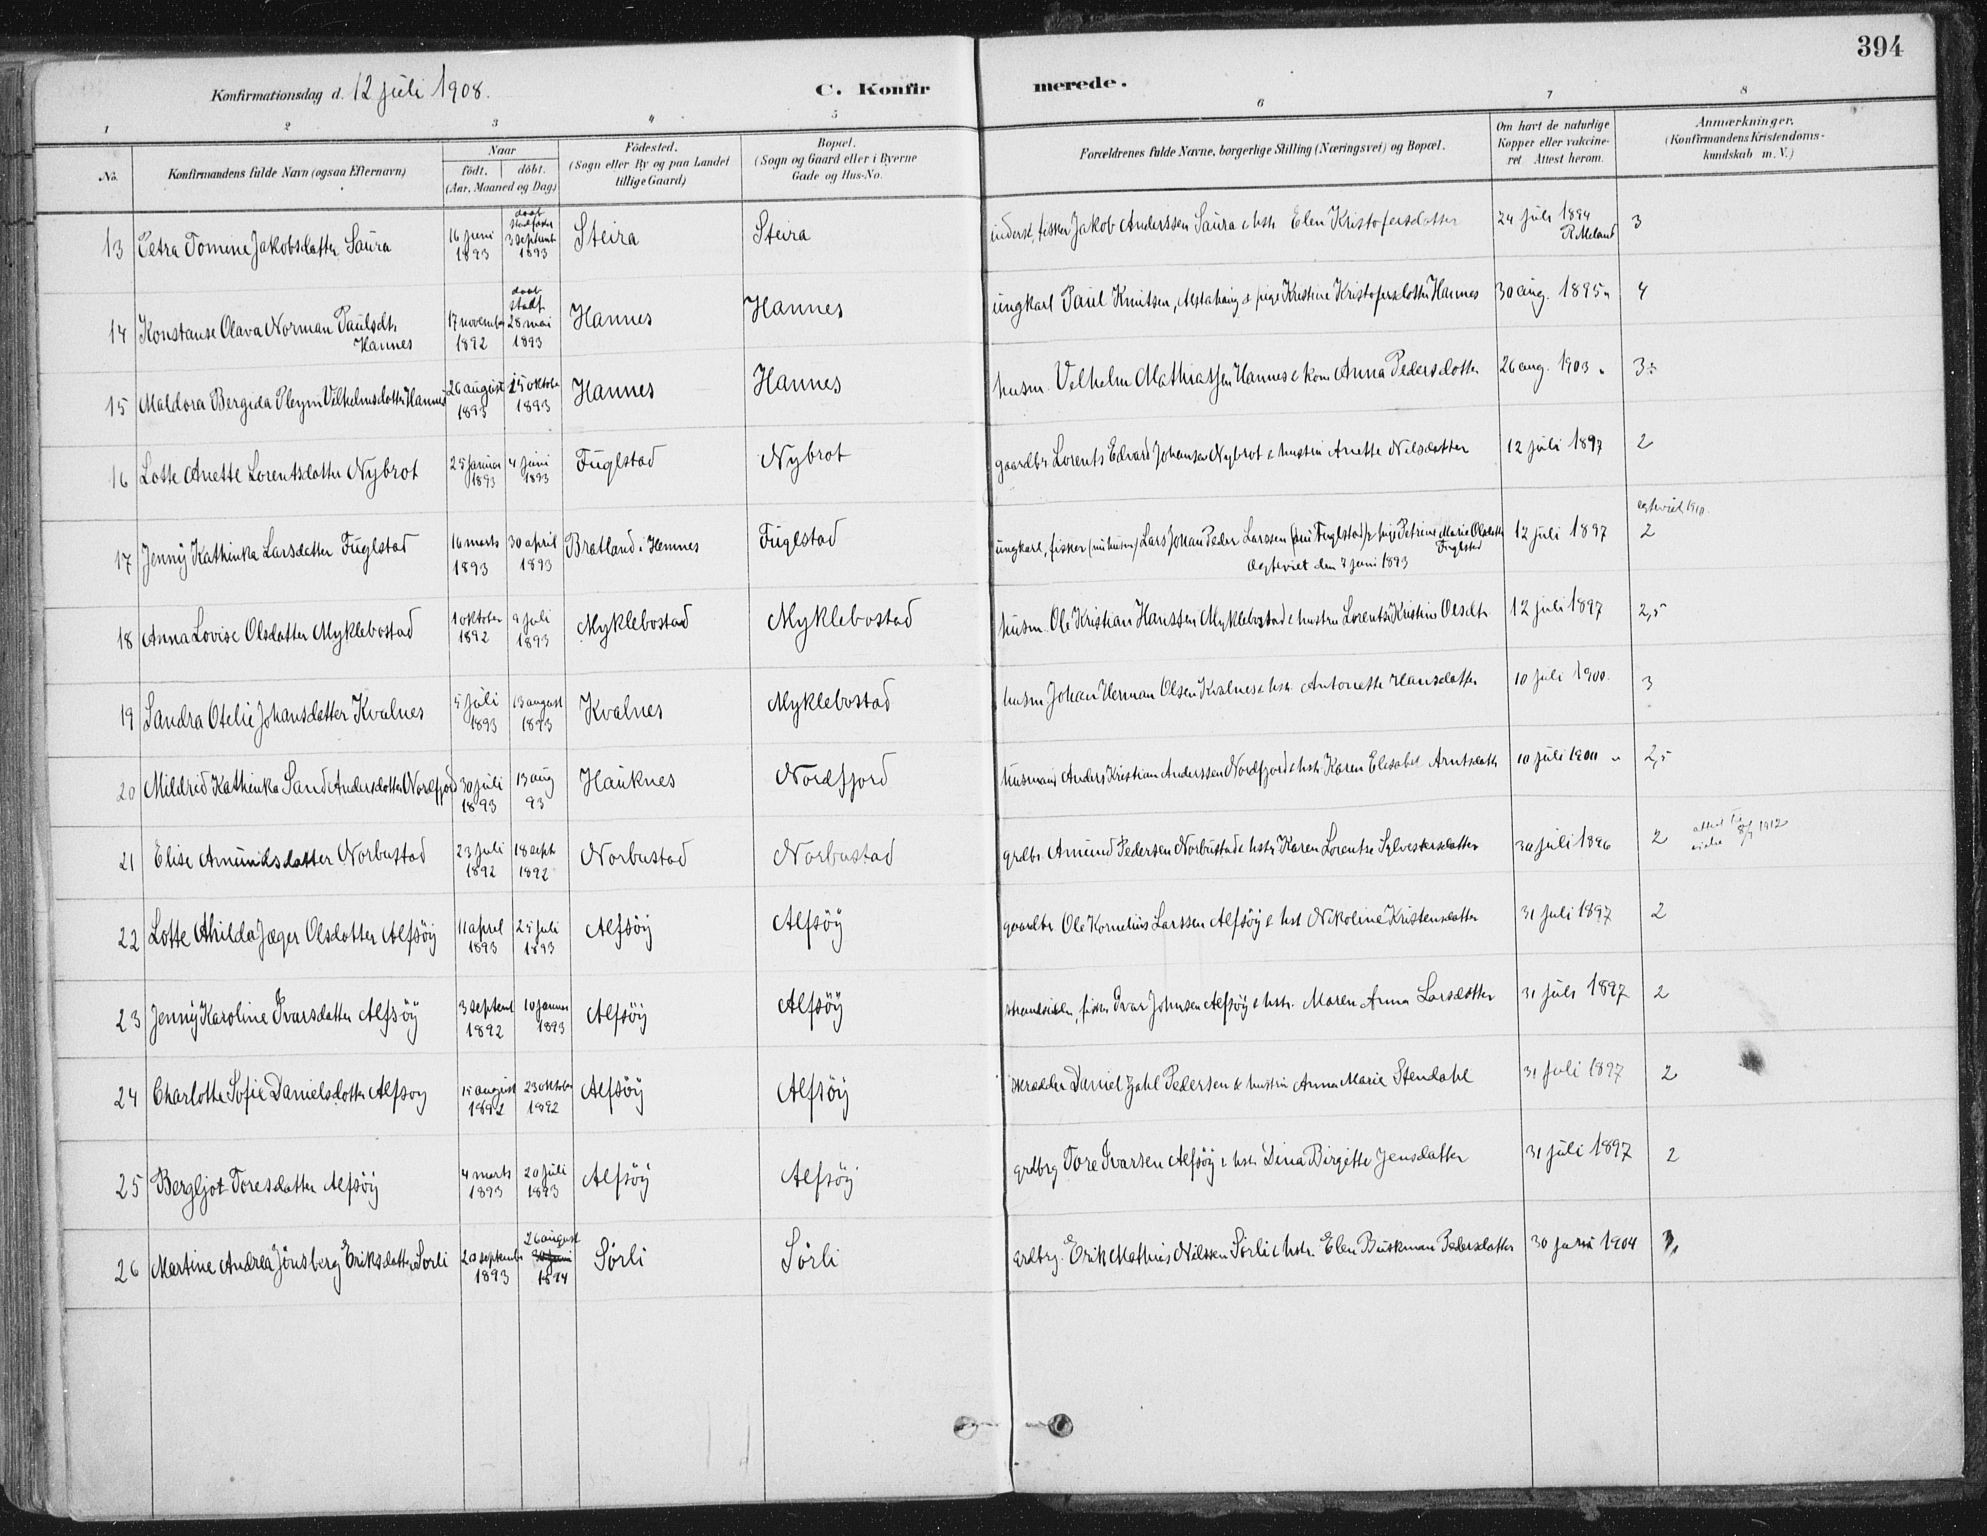 394
Konfirmationsdag d. 12 juli 1908.
C. Konfirmerede.
1 2 3 4 5 6 7 8
No.
Konfirmandens fulde Navn (ogsaa Efternavn)
Naar
født. døbt.
(Aar, Maaned og Dag)
Fødested.
(Sogn eller By og paa Landet
tillige Gaard)
Bopæl.
(Sogn og Gaard eller i Byerne
Gade og Hus-No.
Forældrenes fulde Navne, borgerlige Stilling (Næringsvei) og Bopæl.
Om havt de naturlige
Kopper eller vakcine-
ret Attest herom.
Anmærkninger.
(Konfirmandens Kristendoms-
kundskab m. V.)
13 Petra Tomine Jakobsdatter Saura 16 juni 1893 daab stadfestet 3 septemb 1893 Steira Steira inderst, fisker Jakob Anderssen Saura & hstr Elen Kristofersdatter 24 juli 1894 R. Meland 3
14 Konstanse Olava Norman Paulsdt. Hannes 17 november 1892 daab stadf. 28 mai 1893 Hannes Hannes ungkarl Paul Knutsen, Alstahaug & pige Kristine Kristofersdatter Hannes 30 aug. 1895 " 4
15 Maldora Bergida Pleym Vilhelmsdatter Hannes 26 august 1893 15 oktober 1893 Hannes Hannes husm. Vilhelm Mathiassen Hannes & kone Anna Pedersdatter 26 aug. 1903 " 3
16 Lotte Anette Lorentsdatter Nybrot 25 januar 1893 4 juni 1893 Fuglstad Nybrot gaardbr Lorents Edvard Johansen Nybrot & hustru Anette Nilsdatter 12 juli 1897 2
17 Jenny Kathinka Larsdatter Fuglstad 16 marts 1893 30 april 1893 Bratland i Hemnes Fuglstad ungkarl, fisker (nu husm) Lars Johan Peder Larssen (nu Fuglstad) & pige Petrine Marie Olsdatter Fuglstad
Egteviet den 7 juni 1893 12 juli 1897 egteviet 1910. 2
18 Anna Lovise Olsdatter Myklebostad 1 oktober 1892 9 juli 1893 Myklebostad Myklebostad husm. Ole Kristian Hanssen Myklebostad & hustru Lorentse Kristine Olsdtr. 12 juli 1897 2,5
19 Sandra Otelie Johansdatter Kvalnes 5 juli 1893 13 august 1893 Kvalnes Myklebostad husm Johan Herman Olsen Kvalnes & hstr. Antonette Hansdatter 10 juli 1900. 3
20 Mildrid Kathinka Sand Andersdatter Nordfjord 30 juli 1893 13 aug 93 Hauknes Nordfjord husmand Anders Kristian Anderssen Nordfjord & hstr Karen Elisabet Arntsdatter 10 juli 1900 " 2,5
21 Elise Amundsdatter Norbustad 23 juli 1892 18 sept 1892 Norbustad Norbustad grdbr. Amund Pedersen Norbustad & hstr Karen Lorentse Sylvestersdatter 30 juli 1896 2 attest 8/7 1912
22 Lotte Alhilda Jæger Olsdatter Alfsöy 11 april 1893 25 juli 1893 Alfsöy Alfsöy gaardbr Ole Kornelius Larssen Alfsöy & hst Nikoline Kristensdatter 31 juli 1897 2
23 Jenny Karoline Ivarsdatter Alfsöy 3 septemb 1892 10 januar 1893 Alfsöy Alfsöy strandsidder, fisker Ivar Johnsen Alfsöy & hstr. Maren Anna Larsdatter 31 juli 1897 2
24 Charlotte Sofie Danielsdatter Alfsoy 15 august 1892 23 oktober 1892 Alfsöy Alfsöy skrædder Daniel Zahl Pedersen & hustru Anna Marie Stendahl 31 juli 1897 2
25 Bergljot Toresdatter Alfsöy 4 marts 1893 20 juli 1893 Alfsöy Alfsöy grdbrg Tore Ivarsen Alfsöy & hstr Dina Birgitte Jensdatter 31 juli 1897 2
26 Martine Andrea Jönsberg Eriksdatter Sorli 20 september 1893 26 august 1894 Sörli Sörli grdbrg. Erik Mathias Nilssen Sörli & hstr. Elen Buskman Pedersdatter 30 juni 1904 3